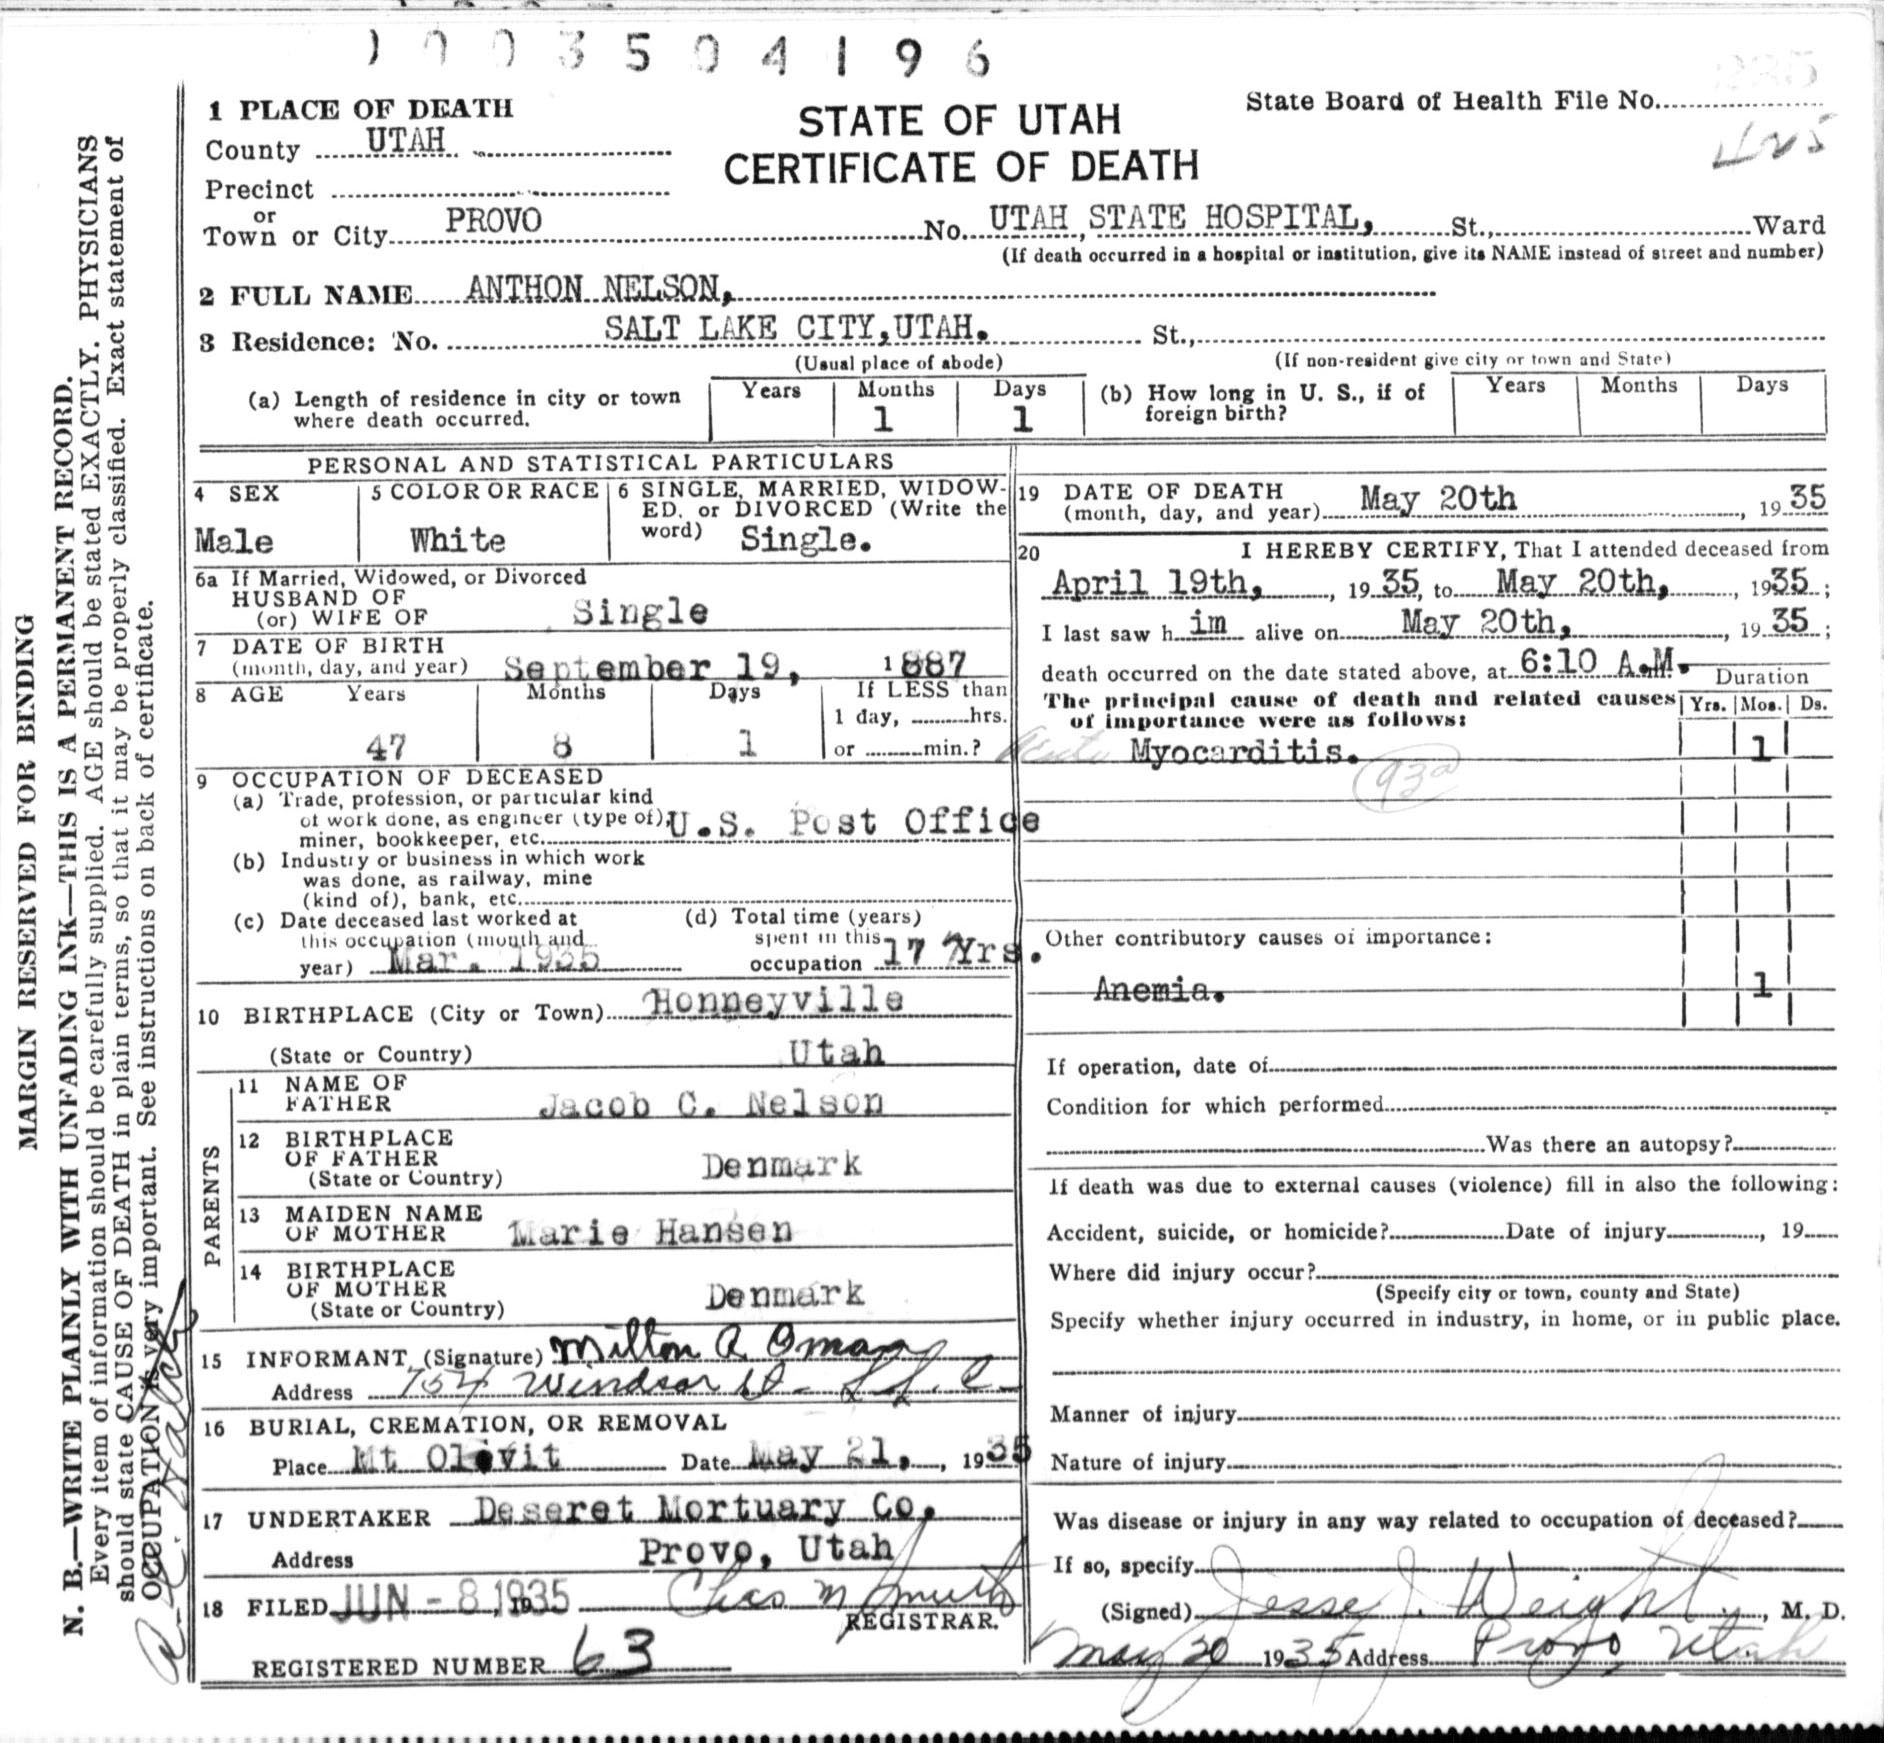 1003504196
1 PLACE OF DEATH
County UTAH
Precinct
or
Town or City PROVO
STATE OF UTAH
CERTIFICATE OF DEATH
State Board of Health File No.
No. UTAH STATE HOSPITAL, St., Ward
(If death occurred in a hospital or institution, give its NAME instead of street and number)
2 FULL NAME ANTHON NELSON,
3 Residence: No. SALT LAKE CITY, UTAH. St.,
(Usual place of abode) (If non-resident give city or town and State)
(a) Length of residence in city or town where death occurred. Years Months 1 Days 1
(b) How long in U. S., if of foreign birth? Years Months Days
PERSONAL AND STATISTICAL PARTICULARS
4 SEX Male
5 COLOR OR RACE White
6 SINGLE, MARRIED, WIDOWED, or DIVORCED (Write the word) Single.
6a If Married, Widowed, or Divorced
HUSBAND OF
(or) WIFE OF Single
7 DATE OF BIRTH
(month, day, and year) September 19, 1887
8 AGE Years 47 Months 8 Days 1 If LESS than
1 day, hrs.
or min.?
9 OCCUPATION OF DECEASED
(a) Trade, profession, or particular kind
of work done, as engineer (type of),
miner, bookkeeper, etc. U.S. Post Office
(b) Industry or business in which work
was done, as railway, mine
(kind of), bank, etc.
(c) Date deceased last worked at
this occupation (month and
year) Mar. 1935
(d) Total time (years)
spent in this
occupation 17 Yrs.
10 BIRTHPLACE (City or Town) Honneyville
(State or Country) Utah
PARENTS
11 NAME OF
FATHER Jacob C. Nelson
12 BIRTHPLACE
OF FATHER
(State or Country) Denmark
13 MAIDEN NAME
OF MOTHER Marie Hansen
14 BIRTHPLACE
OF MOTHER
(State or Country) Denmark
15 INFORMANT (Signature) Milton R Oman
Address 754 Windsor St - S.L.C.
16 BURIAL, CREMATION, OR REMOVAL
Place Mt Olivit Date May 21, 1935
17 UNDERTAKER Deseret Mortuary Co.
Address Provo, Utah
18 FILED JUN - 8 1935 Chas M Smith
REGISTRAR.
REGISTERED NUMBER 63
19 DATE OF DEATH
(month, day, and year) May 20th, 1935
20 I HEREBY CERTIFY, That I attended deceased from
April 19th, 1935, to May 20th, 1935;
I last saw him alive on May 20th, 1935;
death occurred on the date stated above, at 6:10 A.M.
Duration
The principal cause of death and related causes
of importance were as follows: Yrs. Mos. Ds.
Acute Myocarditis. 1
93a
Other contributory causes of importance:
Anemia. 1
If operation, date of
Condition for which performed
Was there an autopsy?
If death was due to external causes (violence) fill in also the following:
Accident, suicide, or homicide? Date of injury, 19
Where did injury occur?
(Specify city or town, county and State)
Specify whether injury occurred in industry, in home, or in public place.
Manner of injury
Nature of injury
Was disease or injury in any way related to occupation of deceased?
If so, specify
(Signed) Jesse J. Weight, M. D.
May 20 1935 Address Provo, Utah
MARGIN RESERVED FOR BINDING
N. B.—WRITE PLAINLY WITH UNFADING INK—THIS IS A PERMANENT RECORD.
Every item of information should be carefully supplied. AGE should be stated EXACTLY. PHYSICIANS
should state CAUSE OF DEATH in plain terms, so that it may be properly classified. Exact statement of
OCCUPATION is very important. See instructions on back of certificate.